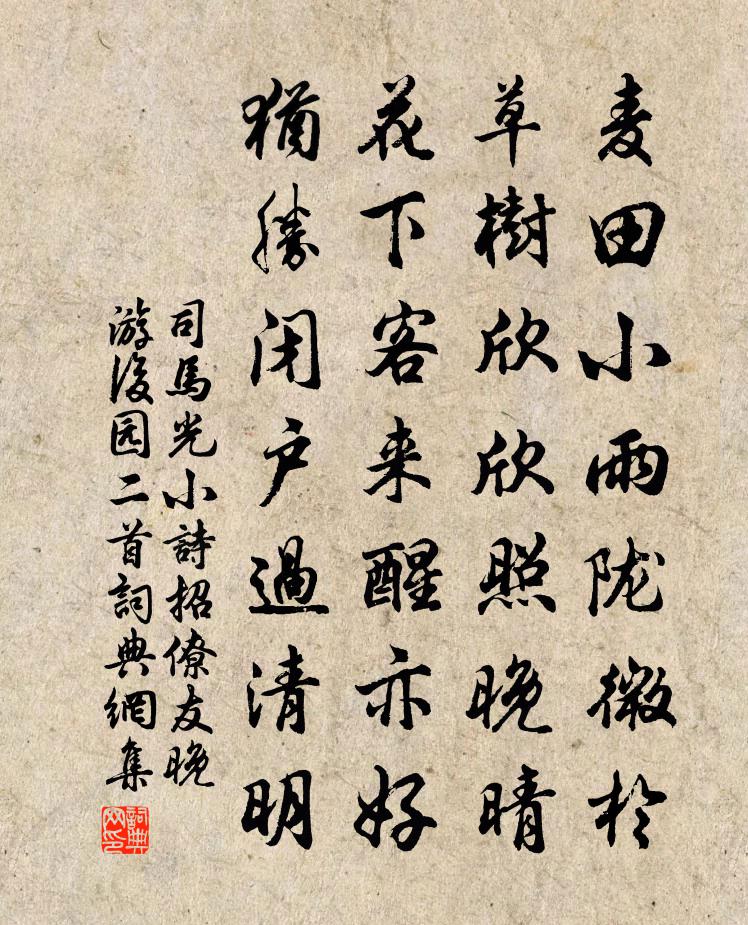 麦田小雨陇微於
草樹欣欣照晚晴
花下客来醒亦好
猶勝闭户過清明
司馬光小詩招僚友晚
游後园二首詞典網集
詞典網印